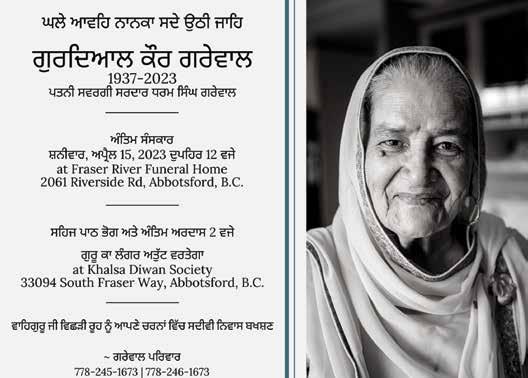 ਘਲੇ ਆਵਹਿ ਨਾਨਕਾ ਸਦੇ ਉਠੀ ਜਾਹਿ
ਗੁਰਦਿਆਲ ਕੌਰ ਗਰੇਵਾਲ
1937-2023
ਪਤਨੀ ਸਵਰਗੀ ਸਰਦਾਰ ਧਰਮ ਸਿੰਘ ਗਰੇਵਾਲ
ਅੰਤਿਮ ਸੰਸਕਾਰ
ਸ਼ਨੀਵਾਰ, ਅਪ੍ਰੈਲ 15, 2023 ਦੁਪਹਿਰ 12 ਵਜੇ
at Fraser River Funeral Home
2061 Riverside Rd, Abbotsford, B.C.
ਸਹਿਜ ਪਾਠ ਭੋਗ ਅਤੇ ਅੰਤਿਮ ਅਰਦਾਸ 2 ਵਜੇ
ਗੁਰੂ ਕਾ ਲੰਗਰ ਅਤੁੱਟ ਵਰਤੇਗਾ
at Khalsa Diwan Society
33094 South Fraser Way, Abbotsford, B.C.
ਵਾਹਿਗੁਰੂ ਜੀ ਵਿਛੜੀ ਰੂਹ ਨੂੰ ਆਪਣੇ ਚਰਨਾਂ ਵਿੱਚ ਸਦੀਵੀ ਨਿਵਾਸ ਬਖਸ਼ਣ
~ ਗਰੇਵਾਲ ਪਰਿਵਾਰ
778-245-1673 | 778-246-1673